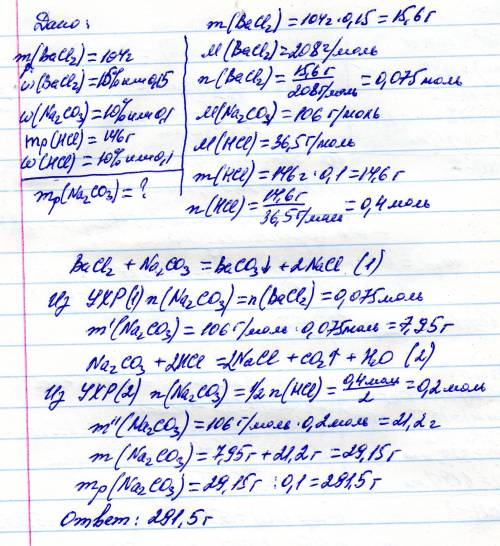 Дано:
mр(BaCl₂)=104г
ω(BaCl₂)=15% или 0,15
ω(Na₂CO₃)=10% или 0,1
mр(HCl)=146г
ω(HCl)=10% или 0,1
mр(Na₂CO₃)=?
m(BaCl₂)=104г·0,15=15,6г
M(BaCl₂)=208г/моль
n(BaCl₂)=15,6г/208г/моль=0,075моль
M(Na₂CO₃)=106 г/моль
M(HCl)=36,5г/моль
m(HCl)=146г·0,1=14,6г
n(HCl)=14,6г/36,5г/моль=0,4моль
BaCl₂+Na₂CO₃=BaCO₃↓+2NaCl (1)
Из УХР(1) n(Na₂CO₃)=n(BaCl₂)=0,075моль
m'(Na₂CO₃)=106г/моль·0,075моль=7,95г
Na₂CO₃+2HCl=2NaCl+CO₂↑+H₂O (2)
Из УХР(2) n(Na₂CO₃)=1/2n(HCl)=0,4моль/2=0,2моль
m"(Na₂CO₃)=106г/моль·0,2моль=21,2г
m(Na₂CO₃)=7,95г+21,2г=29,15г
mр(Na₂CO₃)=29,15г:0,1=291,5г
Ответ: 291,5г